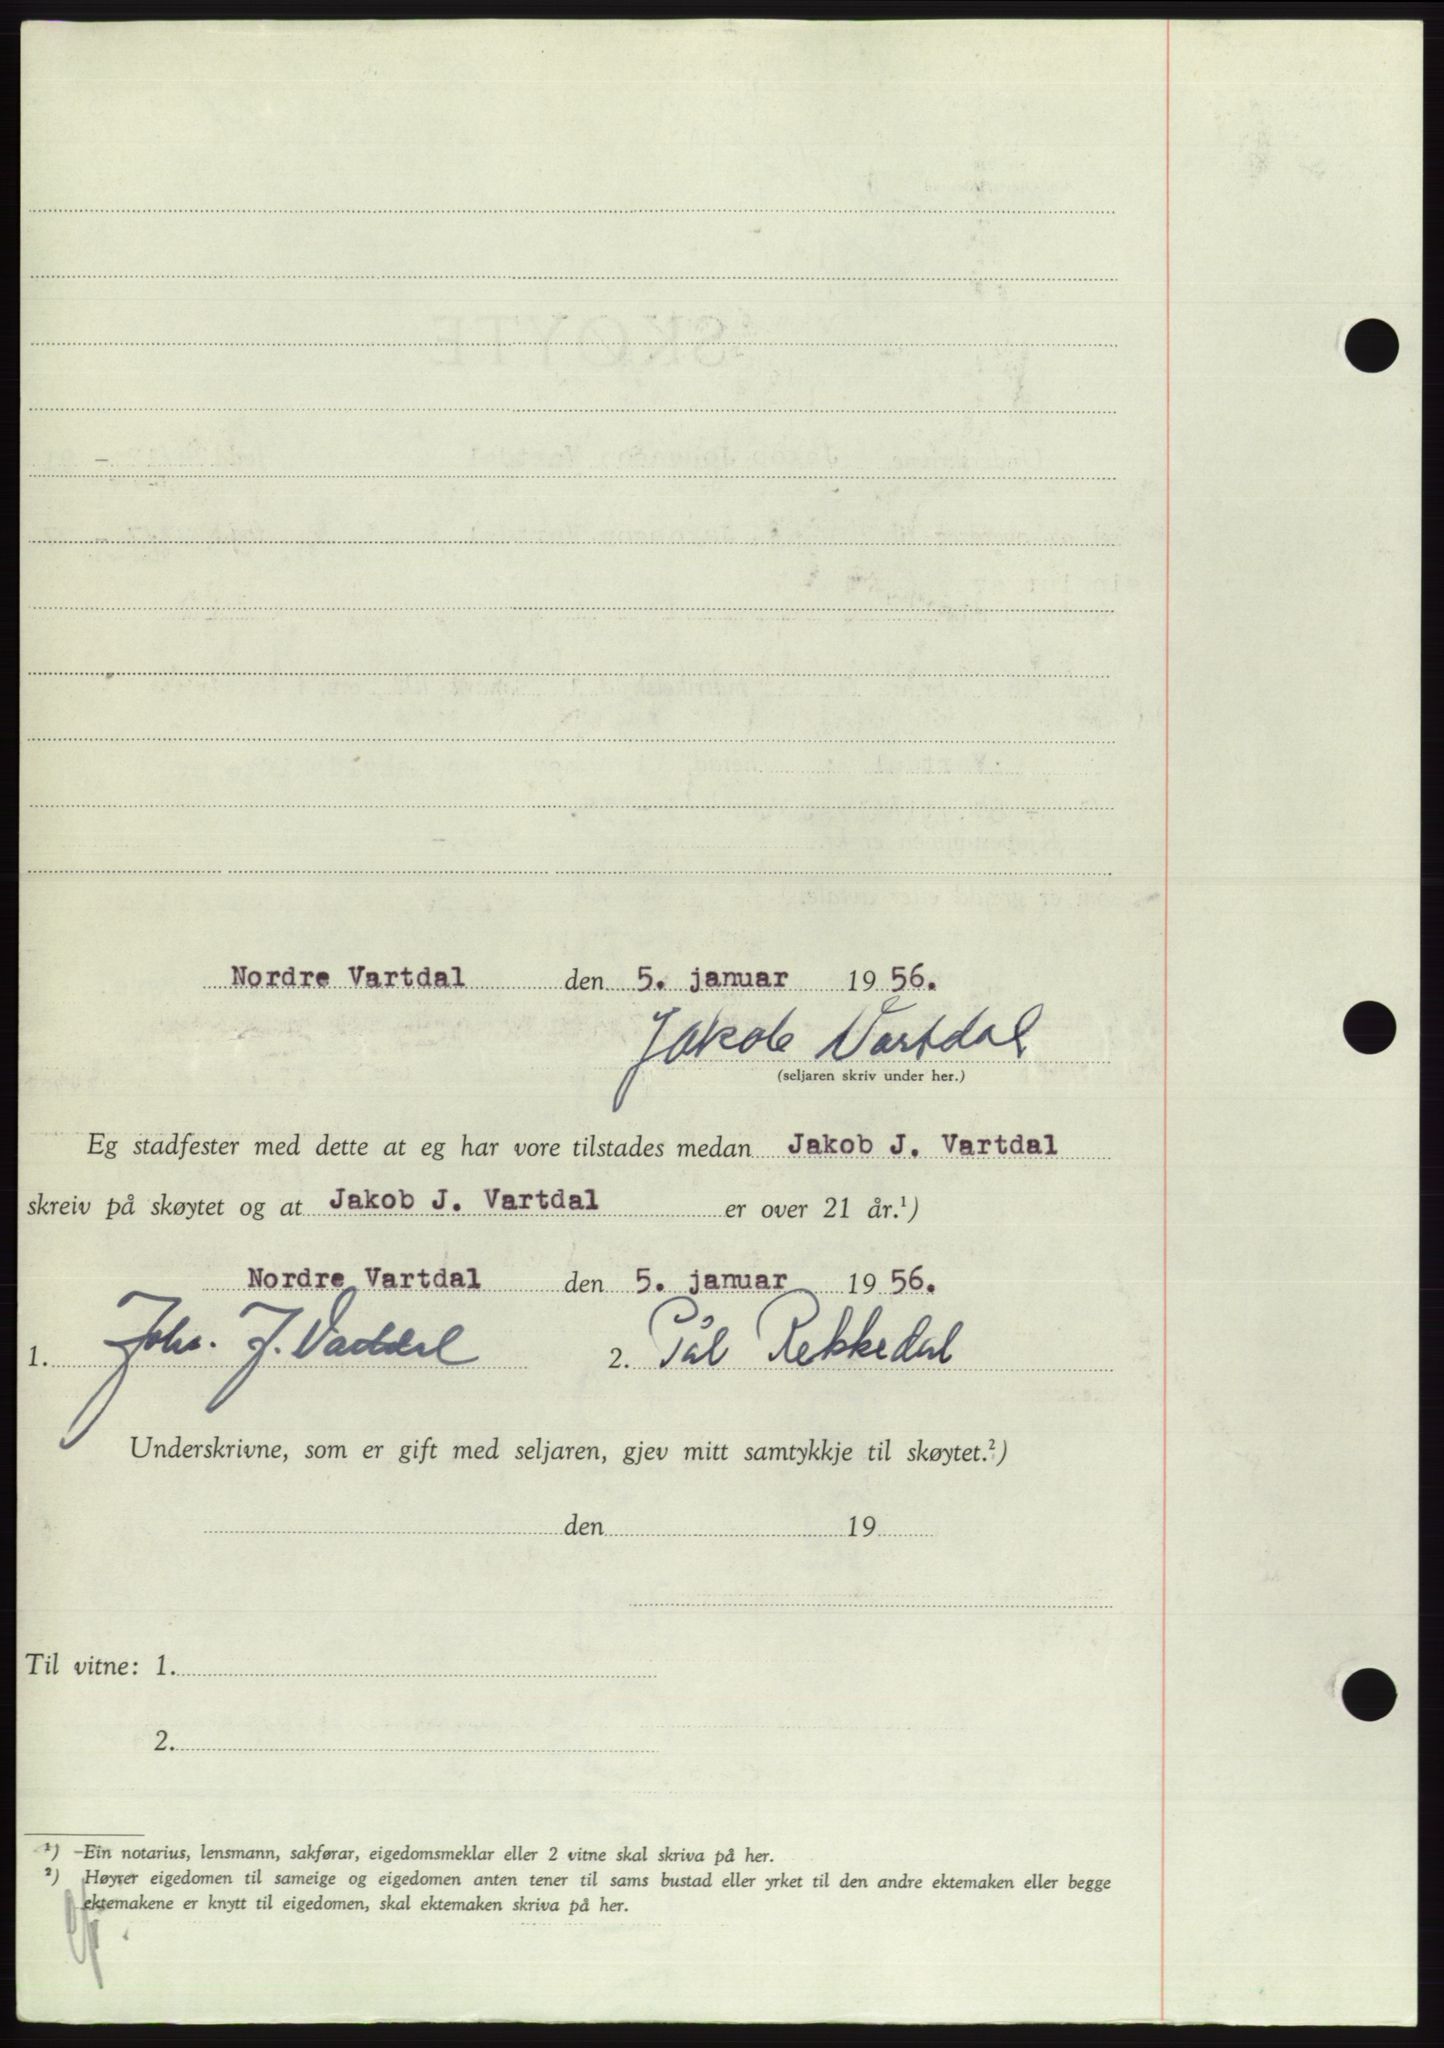 Nordre Vartdal den 5. januar 1956.
Jakob Vartdal
(seljaren skriv under her.)
Eg stadfester med dette at eg har vore tilstades medan Jakob J. Vartdal
skreiv på skøytet og at Jakob J. Vartdal er over 21 år.¹)
Nordre Vartdal den 5. januar 1956.
1. Johs. J. Vartdal 2. Pål Rekkedal
Underskrivne, som er gift med seljaren, gjev mitt samtykkje til skøytet.²)
den 19
Til vitne: 1.
2.
¹) Ein notarius, lensmann, sakførar, eigedomsmeklar eller 2 vitne skal skriva på her.
²) Høyrer eigedomen til sameige og eigedomen anten tener til sams bustad eller yrket til den andre ektemaken eller begge
ektemakene er knytt til eigedomen, skal ektemaken skriva på her.